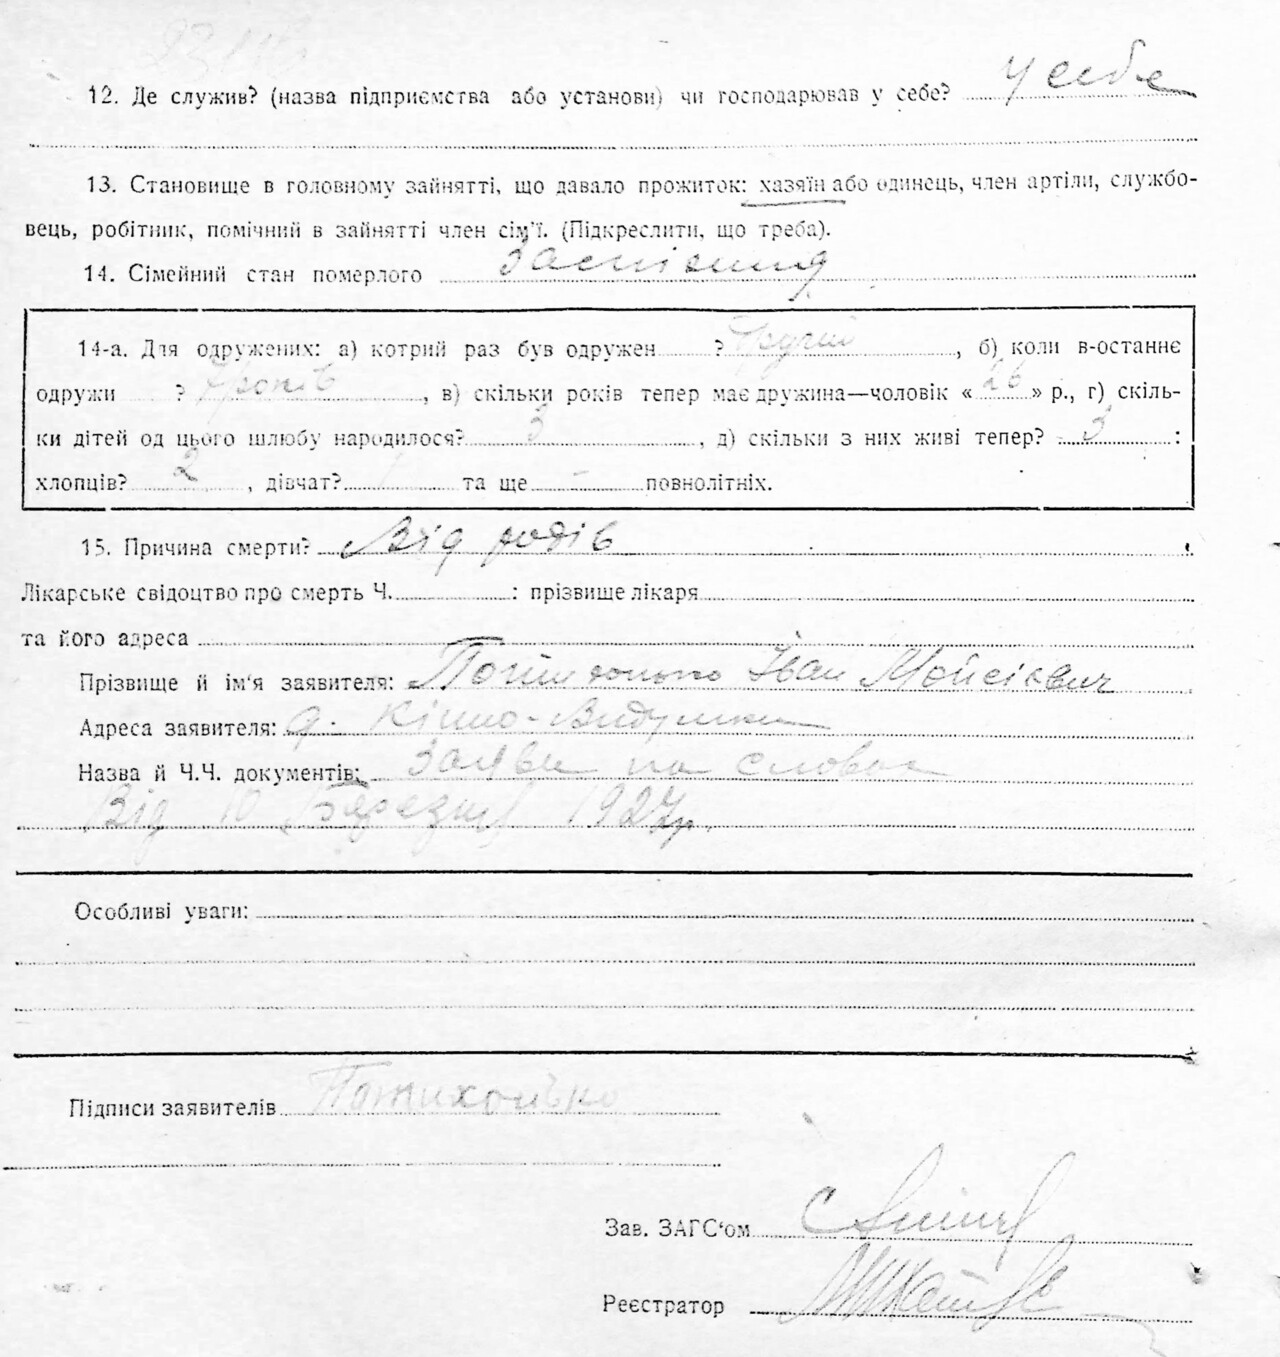 12. Де служив? (назва підприємства або установи) чи господарював у себе? у себе
13. Становище в головному зайнятті, що давало прожиток: хазяїн або одинець, член артіли, службо-
вець, робітник, помічний в зайнятті член сім'ї. (Підкреслити, що треба).
14. Сімейний стан померлого
14-а. Для одружених: а) котрий раз був одружен ? другій, б) коли в-останнє
одружи ? 7 років, в) скільки років тепер має дружина—чоловік « 26 » р., г) скіль-
ки дітей од цього шлюбу народилося? 3, д) скільки з них живі тепер? 3:
хлопців? 2, дівчат? 1 та ще - повнолітніх.
15. Причина смерти? Від родів
Лікарське свідоцтво про смерть Ч. : прізвище лікаря
та його адреса
Прізвище й ім'я заявителя: Іван Мойсієвич
Адреса заявителя:
Назва й Ч.Ч. документів: Заява на словах
Від 10 Березня 1927р.
Особливі уваги:
Підписи заявителів Потихонько
Зав. ЗАГС'ом
Реєстратор